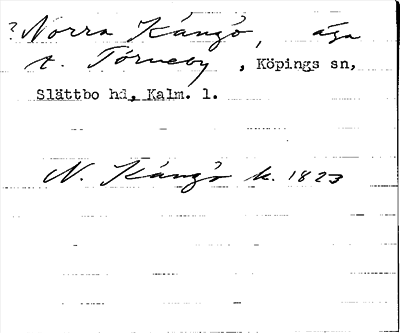 ? Norra Kångö, äga
t. Törneby, Köpings sn,
Slättbo hd, Kalm. l.
N. Kångö k. 1823